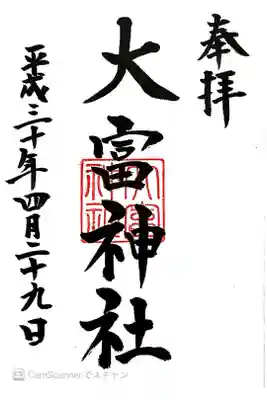 奉拝
大富神社
平成三十年四月二十九日
大富神社
CamScanner でスキャン